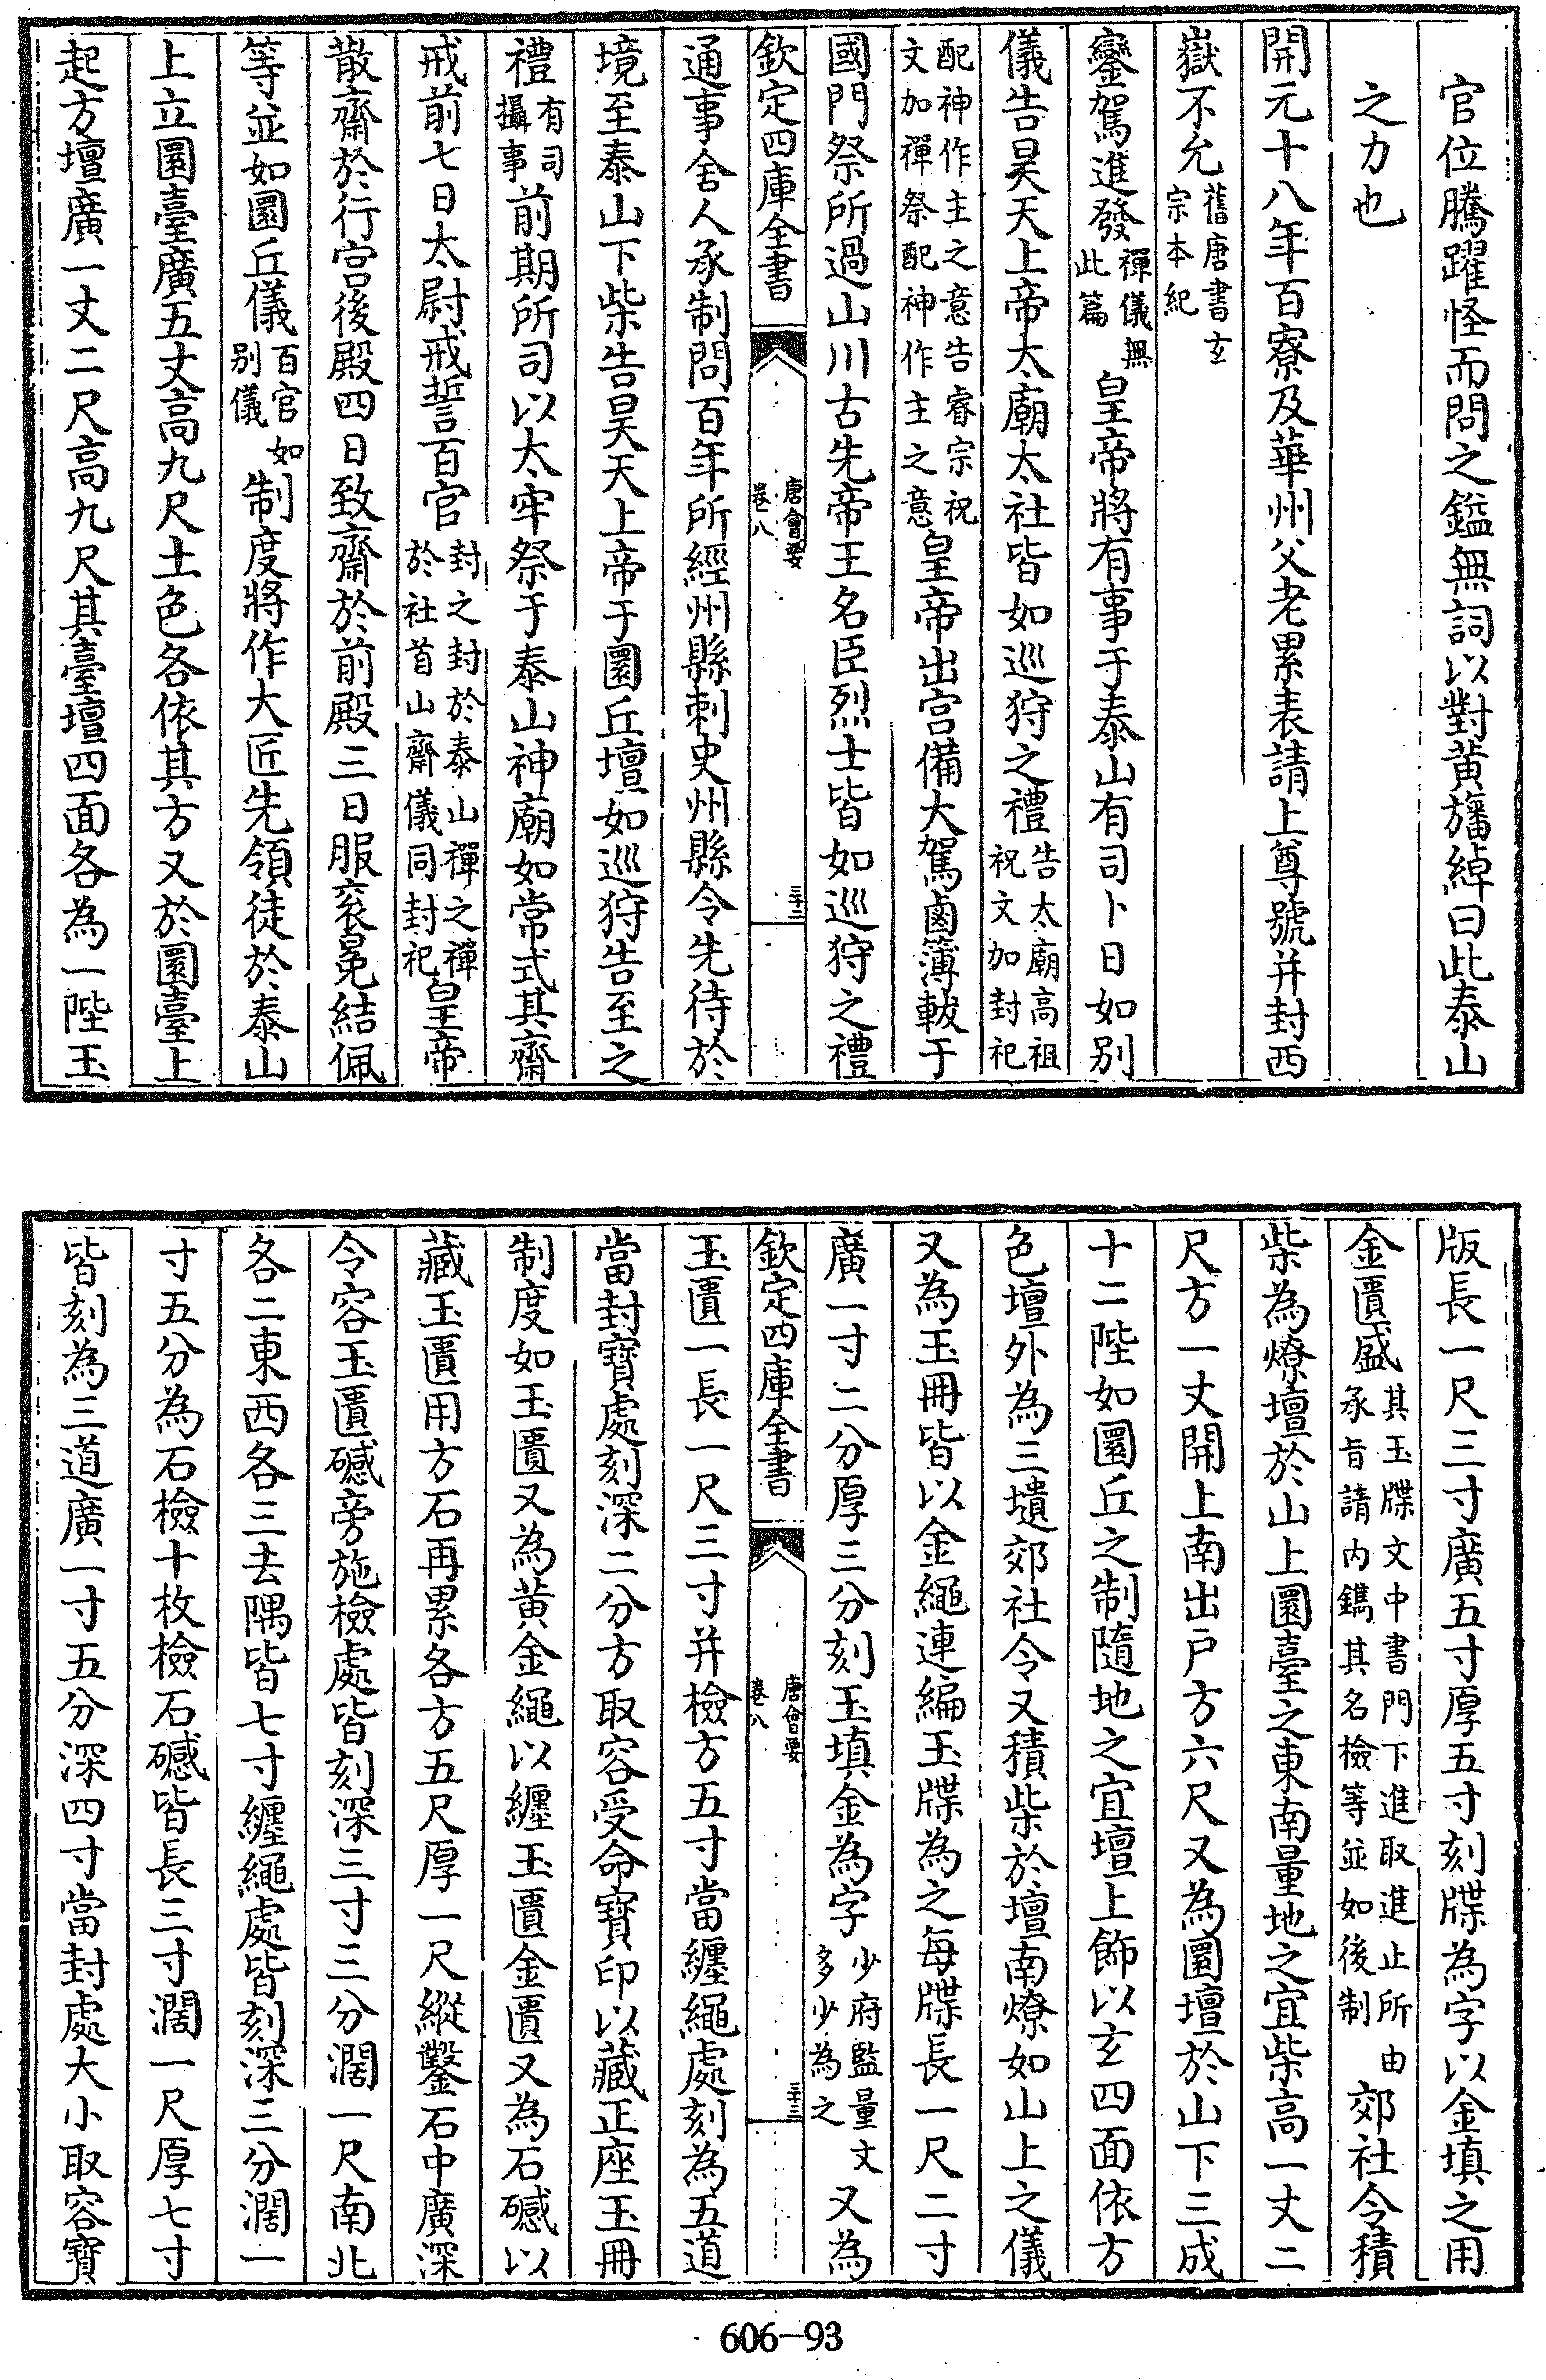 官位騰躍怪而問之鎰無詞以對黄旛綽曰此泰山
之力也
開元十八年百寮及華州父老累表請上尊號并封西
嶽不允舊唐書玄宗本紀
鑾駕進發禪儀無此篇皇帝將有事于泰山有司卜日如别
儀告昊天上帝太廟太社皆如巡狩之禮告太廟高祖祝文加封祀
配神作主之意告睿宗祝文加禪祭配神作主之意皇帝出宫備大駕鹵簿軷于
國門祭所過山川古先帝王名臣烈士皆如巡狩之禮
欽定四庫全書 唐會要 卷八 三十二
通事舍人承制問百年所經州縣刺史州縣令先待於
境至泰山下柴告昊天上帝于圜丘壇如巡狩告至之
禮有司攝事前期所司以太牢祭于泰山神廟如常式其齋
戒前七日太尉戒誓百官封之封於泰山禪之禪於社首山齋儀同封祀皇帝
散齋於行宫後殿四日致齋於前殿三日服衮冕結佩
等並如圜丘儀百官如别儀制度將作大匠先領徒於泰山
上立圜臺廣五丈高九尺土色各依其方又於圜臺上
起方壇廣一丈二尺高九尺其臺壇四面各為一陛玉
版長一尺三寸廣五寸厚五寸刻牒為字以金填之用
金匱盛其玉牒文中書門下進取進止所由承旨請内鐫其名檢等並如後制郊社令積
柴為燎壇於山上圜臺之東南量地之宜柴高一丈二
尺方一丈開上南出户方六尺又為圜壇於山下三成
十二陛如圜丘之制隨地之宜壇上飾以玄四面依方
色壇外為三壝郊社令又積柴於壇南燎如山上之儀
又為玉冊皆以金繩連編玉牒為之每牒長一尺二寸
廣一寸二分厚三分刻玉填金為字少府監量文多少為之又為
欽定四庫全書 唐會要 卷八 三十三
玉匱一長一尺三寸并檢方五寸當纏繩處刻為五道
當封寶處刻深二分方取容受命寶印以藏正座玉冊
制度如玉匱又為黄金繩以纏玉匱金匱又為石䃭以
藏玉匱用方石再累各方五尺厚一尺縱鑿石中廣深
令容玉匱䃭旁施檢處皆刻深三寸三分濶一尺南北
各二東西各三去隅皆七寸纏繩處皆刻深三分濶一
寸五分為石檢十枚檢石䃭皆長三寸濶一尺厚七寸
皆刻為三道廣一寸五分深四寸當封處大小取容寶
606-93